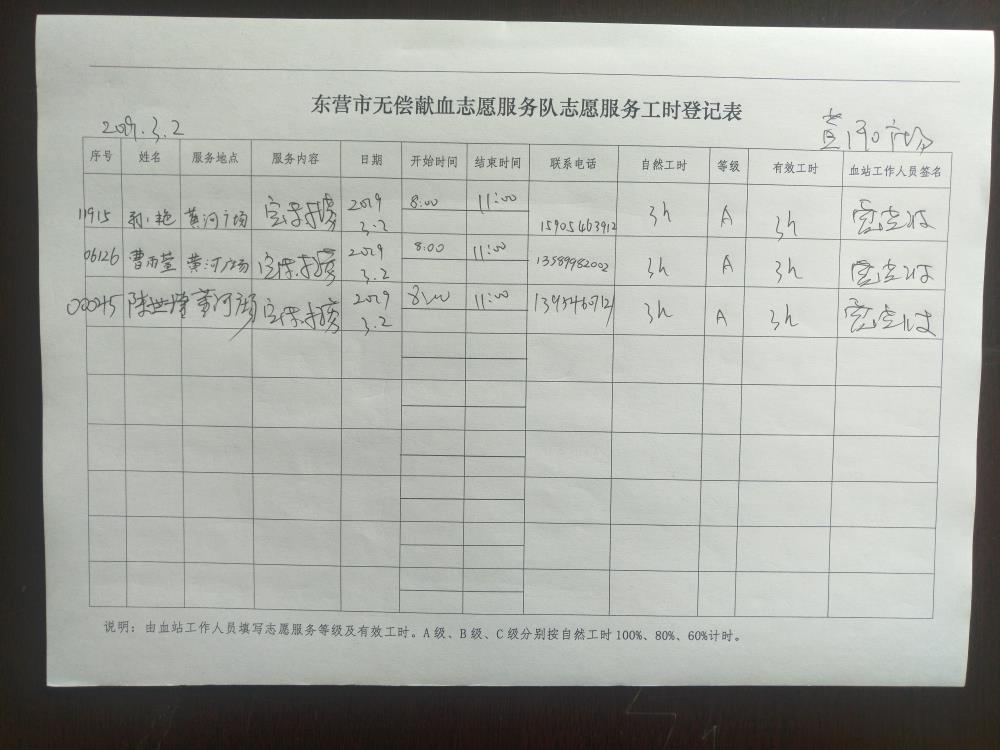 东营市无偿献血志愿服务队志愿服务工时登记表
2019.3.2 黄河广场
序号 姓名 服务地点 服务内容 日期 开始时间 结束时间 联系电话 自然工时 等级 有效工时 血站工作人员签名
11915 孙艳 黄河广场 宣传招募 2019 3.2 8:00 11:00 15905463912 3h A 3h
06126 曹雨莹 黄河广场 宣传招募 2019 3.2 8:00 11:00 13589982002 3h A 3h
00045 黄河广场 宣传招募 2019 3.2 8:00 11:00 3h A 3h
说明：由血站工作人员填写志愿服务等级及有效工时。A 级、B 级、C 级分别按自然工时 100%、80%、60%计时。